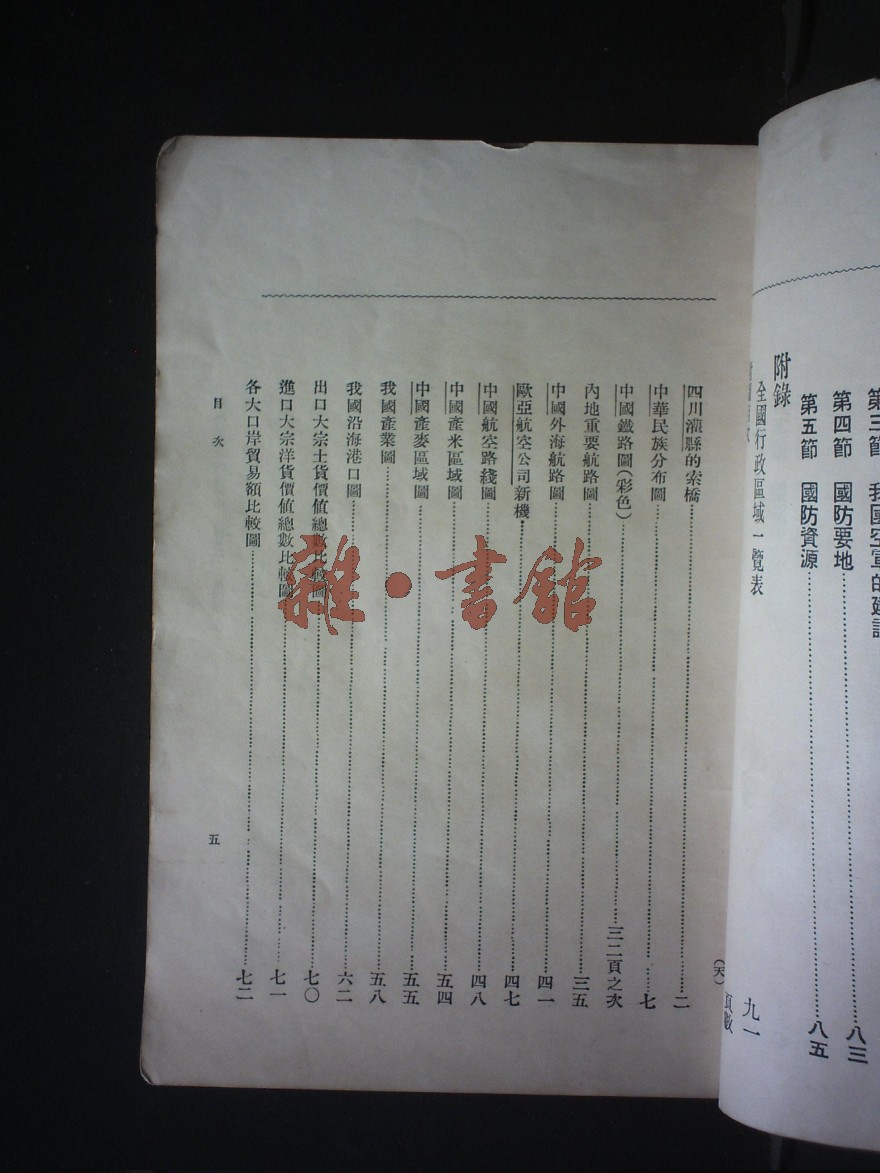 第三節　我國空軍的建設
第四節　國防要地……八三
第五節　國防資源……八五
附錄
全國行政區域一覽表　九一
頁數
四川灌縣的索橋……二
中華民族分布圖……七
中國鐵路圖(彩色)……三二頁之次
內地重要航路圖……三五
中國外海航路圖……四一
歐亞航空公司新機……四七
中國航空路綫圖……四八
中國產米區域圖……五四
中國產麥區域圖……五五
我國產業圖……五八
我國沿海港口圖……六二
出口大宗土貨價值總數比較圖……七〇
進口大宗洋貨價值總數比較圖……七一
各大口岸貿易額比較圖……七二
目次
五
雜·書館